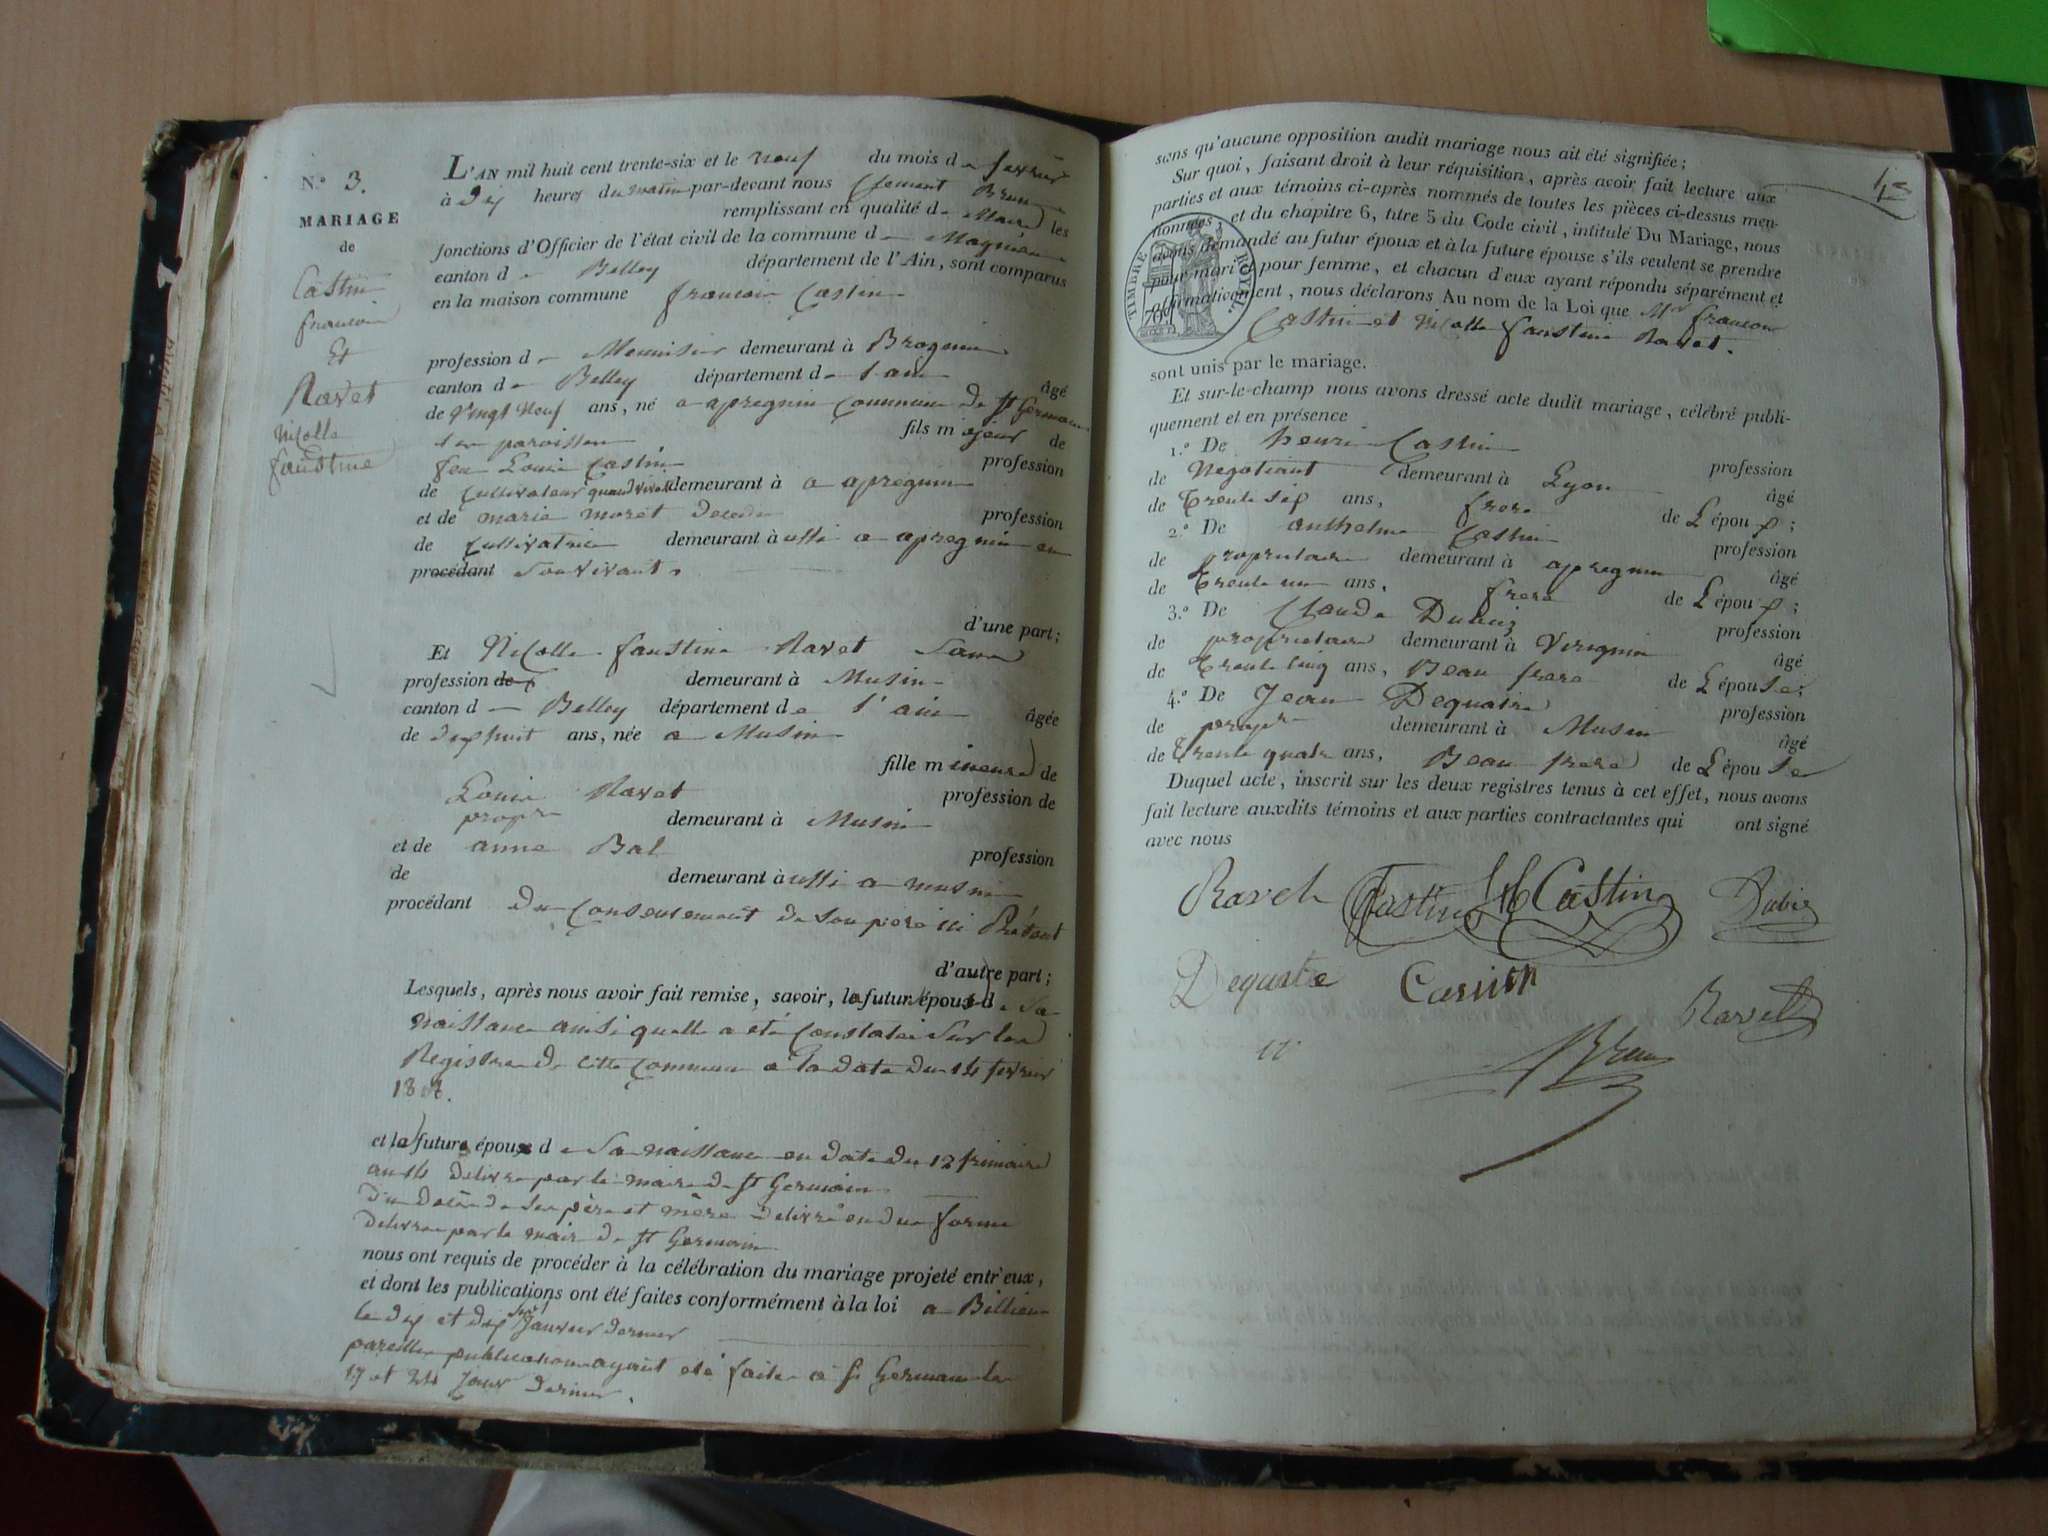 N.º 3.
MARIAGE
de
Castin
francois
Et
Ravet
Nicolle
faustine
L'AN mil huit cent trente-six et le neuf du mois de fevrier
à dix heures du matin par-devant nous Clement Brun
remplissant en qualité de Maire les
fonctions d'Officier de l'état civil de la commune d
canton de Belley département de l'Ain, sont comparus
en la maison commune francois Castin
profession de Meunisier demeurant à Brognin
canton de Belley département de l'ain âgé
de vingt neuf ans, né a apregnin commune de St Germain
les paroisses fils majeur de
feu Louis Castin profession
de Cultivateur quand vivait demeurant à a apregnin
et de marie moret decedee profession
de Cultivatrice demeurant à ussi a apregnin en
procédant Son vivant.
d'une part;
Et Nicolle faustine Ravet Sans
profession de demeurant à Musin
canton d Belley département de l'ain âgée
de dixhuit ans, née a Musin
fille mineure de
Louis Ravet profession de
propre demeurant à Musin
et de anne Bal profession
de demeurant à ussi a musin
procédant du Consentement de Son père ici Présent
d'autre part;
Lesquels, après nous avoir fait remise, savoir, la future épouse de Sa
naissance ainsi quelle a eté Constatée Sur les
Registres de cette Commune a la date du 14 fevrier
18
et le futur époux de Sa naissance en date du 12 frimaire
an 14 delivre par le maire de St Germain
du Décès de Ses père et mère delivré en due forme
delivree par le maire de St Germain
nous ont requis de procéder à la célébration du mariage projeté entr'eux,
et dont les publications ont été faites conformément à la loi a Billieu
le dix et dix Sept Janvier dernier
pareilles publications ayant eté faites a St Germain les
17 et 24 Janv dernier.
sans qu'aucune opposition audit mariage nous ait été signifiée;
Sur quoi, faisant droit à leur réquisition, après avoir fait lecture aux
parties et aux témoins ci-après nommés de toutes les pièces ci-dessus men-
tionnées, et du chapitre 6, titre 5 du Code civil, intitulé Du Mariage, nous
avons demandé au futur époux et à la future épouse s'ils veulent se prendre
pour mari et pour femme, et chacun d'eux ayant répondu séparément et
affirmativement, nous déclarons Au nom de la Loi que Mr francois
Castin et Nicolle faustine Ravet.
TIMBRE ROYAL
sont unis par le mariage.
Et sur-le-champ nous avons dressé acte dudit mariage, célébré publi-
quement et en présence
1.º De henri Castin profession
de Negotiant demeurant à Lyon âgé
de Trente six ans, frere de L'époux;
2.º De anthelme Castin profession
de proprietaire demeurant à apregnin âgé
de Trente un ans, frere de L'époux;
3.º De Claude Dubiez profession
de proprietaire demeurant à Virignin âgé
de Trente cinq ans, Beau frere de L'épouse;
4.º De Jean Dequatre profession
de propre demeurant à Musin âgé
de Trente quatre ans, Beau frere de L'épouse
Duquel acte, inscrit sur les deux registres tenus à cet effet, nous avons
fait lecture auxdits témoins et aux parties contractantes qui ont signé
avec nous
Ravet Castin Castin Dubiez
Dequatre
Ravet
Brun